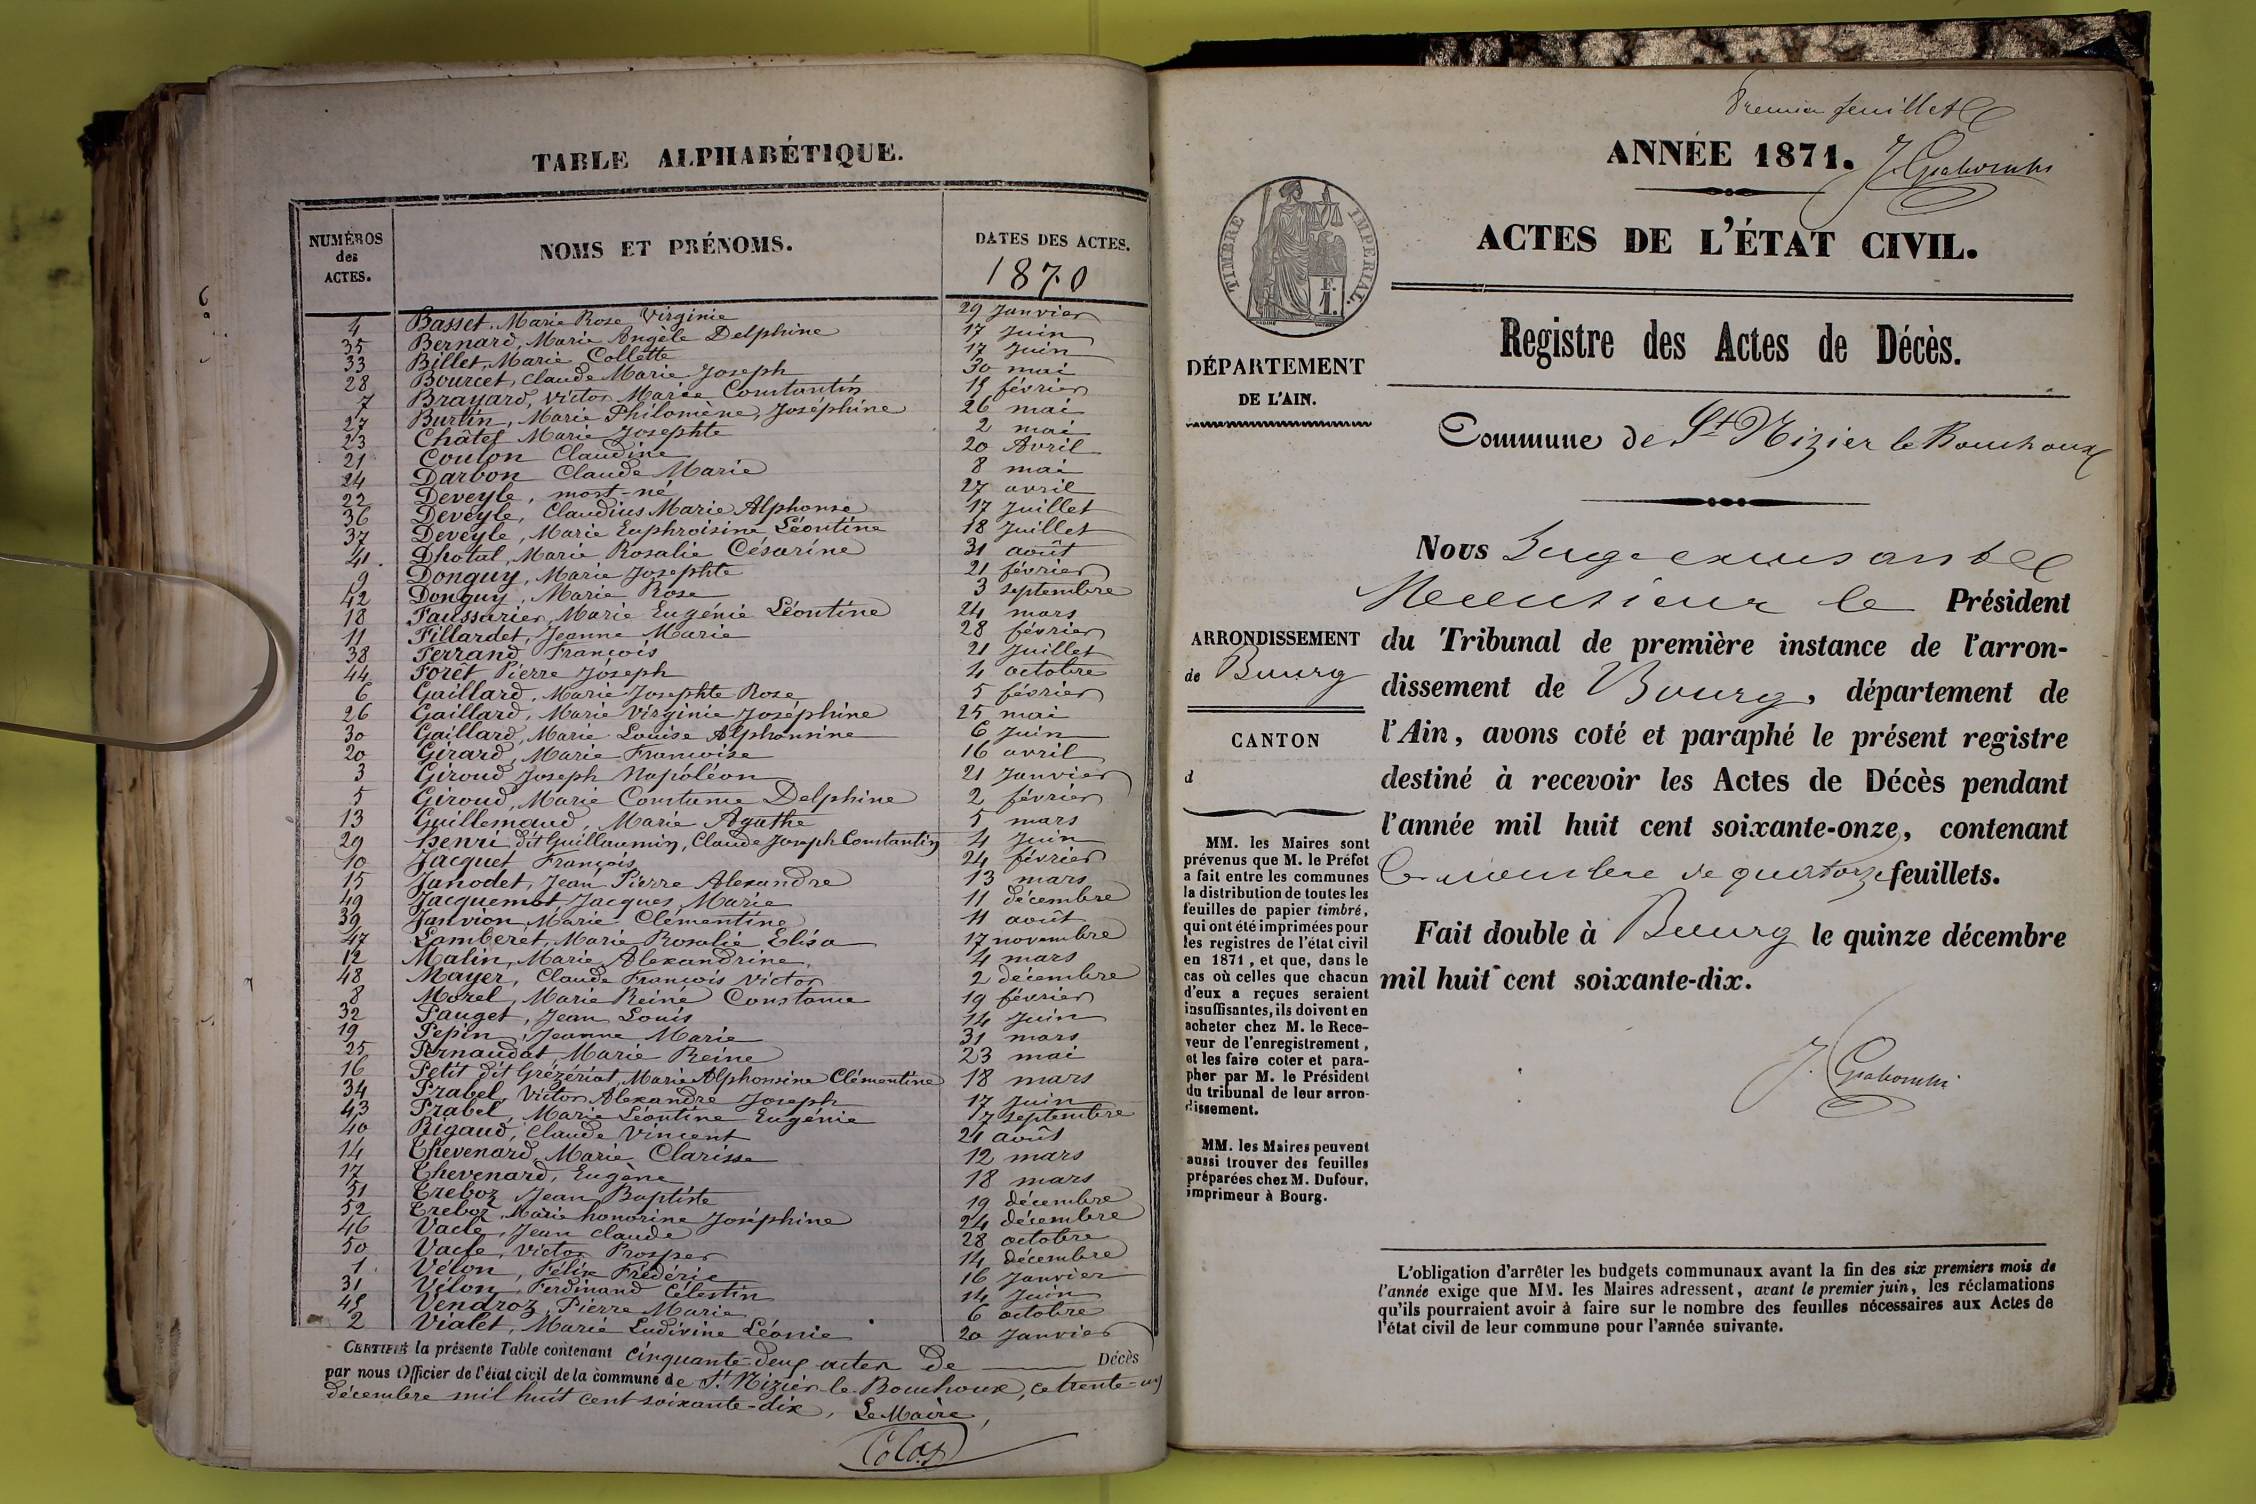 TABLE ALPHABÉTIQUE.
NUMÉROS des ACTES.
NOMS ET PRÉNOMS.
DATES DES ACTES.
1870
4 Basset, Marie Rose Virginie 29 Janvier
35 Bernard, Marie Angèle Delphine 17 Juin
33 Billet, Marie Collette 17 Juin
28 Bourcet, Claude Marie Joseph 30 mai
7 Brayard, Victor Marie Constantin 15 février
27 Burtin, Marie Philomène, Joséphine 26 mai
23 Châtel Marie Josephte 2 mai
21 Coulon Claudine 20 Avril
24 Darbon Claude Marie 8 mai
22 Deveyle, mort-né 27 avril
36 Deveyle, Claudius Marie Alphonse 17 Juillet
37 Deveyle, Marie Euphroisine Léontine 18 Juillet
41. Dhotal, Marie Rosalie Césarine 31 août
9 Donguy, Marie Josephte 21 février
42 Donguy, Marie Rose 3 septembre
18 Faussurier, Marie Eugénie Léontine 24 mars
11 Fillardet, Jeanne Marie 28 février
38 Ferrand François 21 Juillet
44 Forêt Pierre Joseph 4 octobre
6 Gaillard, Marie Josephte Rose 5 février
26 Gaillard, Marie Virginie Joséphine 25 mai
30 Gaillard, Marie Louise Alphonsine 6 Juin
20 Girard, Marie Françoise 16 avril
3 Giroud Joseph Napoléon 21 Janvier
5 Giroud, Marie Constance Delphine 2 février
13 Guillemaud, Marie Agathe 5 mars
29 Henri dit Guillaumin, Claude Joseph Constantin 4 Juin
10 Jacquet François 24 février
15 Janodet, Jean Pierre Alexandre 13 mars
49 Jacquemot, Jacques Marie 11 décembre
39 Janvion, Marie Clémentine 11 août
47 Lamberet, Marie Rosalie Elisa 17 novembre
12 Malin, Marie Alexandrine, 4 mars
48 Mayer, Claude François Victor 2 décembre
8 Morel, Marie Reine Constance 19 février
32 Pauget, Jean Louis 14 Juin
19 Pepin, Jeanne Marie 31 mars
25 Pernaudat, Marie Reine 23 mai
16 Petit dit Grézériat, Marie Alphonsine Clémentine 18 mars
34 Prabel, Victor Alexandre Joseph 17 Juin
43 Prabel, Marie Léontine Eugénie 17 septembre
40 Rigaud, Claude Vincent 21 août
14 Thevenard, Marie Clarisse 12 mars
17 Thevenard, Eugène 18 mars
51 Treboz Jean Baptiste 19 décembre
52 Treboz, Marie honorine Joséphine 24 décembre
46 Vacle, Jean Claude 28 octobre
50 Vacle, Victor Prosper 14 décembre
1 Vélon, Félix Frédéric 16 Janvier
31 Vélon, Ferdinand Célestin 14 Juin
45 Vendroz, Pierre Marie 6 octobre
2 Vialet, Marie Ludivine Léonie 20 Janvier
CERTIFIÉ la présente Table contenant cinquante-deux actes de Décès
par nous Officier de l'état civil de la commune de St. Nizier-le-Bouchoux, ce trente-un
décembre mil huit cent soixante-dix, Le Maire,
Premier feuillet
ANNÉE 1871.
ACTES DE L'ÉTAT CIVIL.
TIMBRE IMPÉRIAL.
F. 1.
Registre des Actes de Décès.
DÉPARTEMENT
DE L'AIN.
Commune de St Nizier le Bouchoux
Nous Juge
le Président
du Tribunal de première instance de l'arron-
dissement de Bourg, département de
l'Ain, avons coté et paraphé le présent registre
destiné à recevoir les Actes de Décès pendant
l'année mil huit cent soixante-onze, contenant
le nombre de quatorze feuillets.
Fait double à Bourg le quinze décembre
mil huit cent soixante-dix.
ARRONDISSEMENT
de Bourg
CANTON
d
MM. les Maires sont
prévenus que M. le Préfet
a fait entre les communes
la distribution de toutes les
feuilles de papier timbré,
qui ont été imprimées pour
les registres de l'état civil
en 1871, et que, dans le
cas où celles que chacun
d'eux a reçues seraient
insuffisantes, ils doivent en
acheter chez M. le Rece-
veur de l'enregistrement,
et les faire coter et para-
pher par M. le Président
du tribunal de leur arron-
dissement.
MM. les Maires peuvent
aussi trouver des feuilles
préparées chez M. Dufour,
imprimeur à Bourg.
L'obligation d'arrêter les budgets communaux avant la fin des six premiers mois de
l'année exige que MM. les Maires adressent, avant le premier juin, les réclamations
qu'ils pourraient avoir à faire sur le nombre des feuilles nécessaires aux Actes de
l'état civil de leur commune pour l'année suivante.